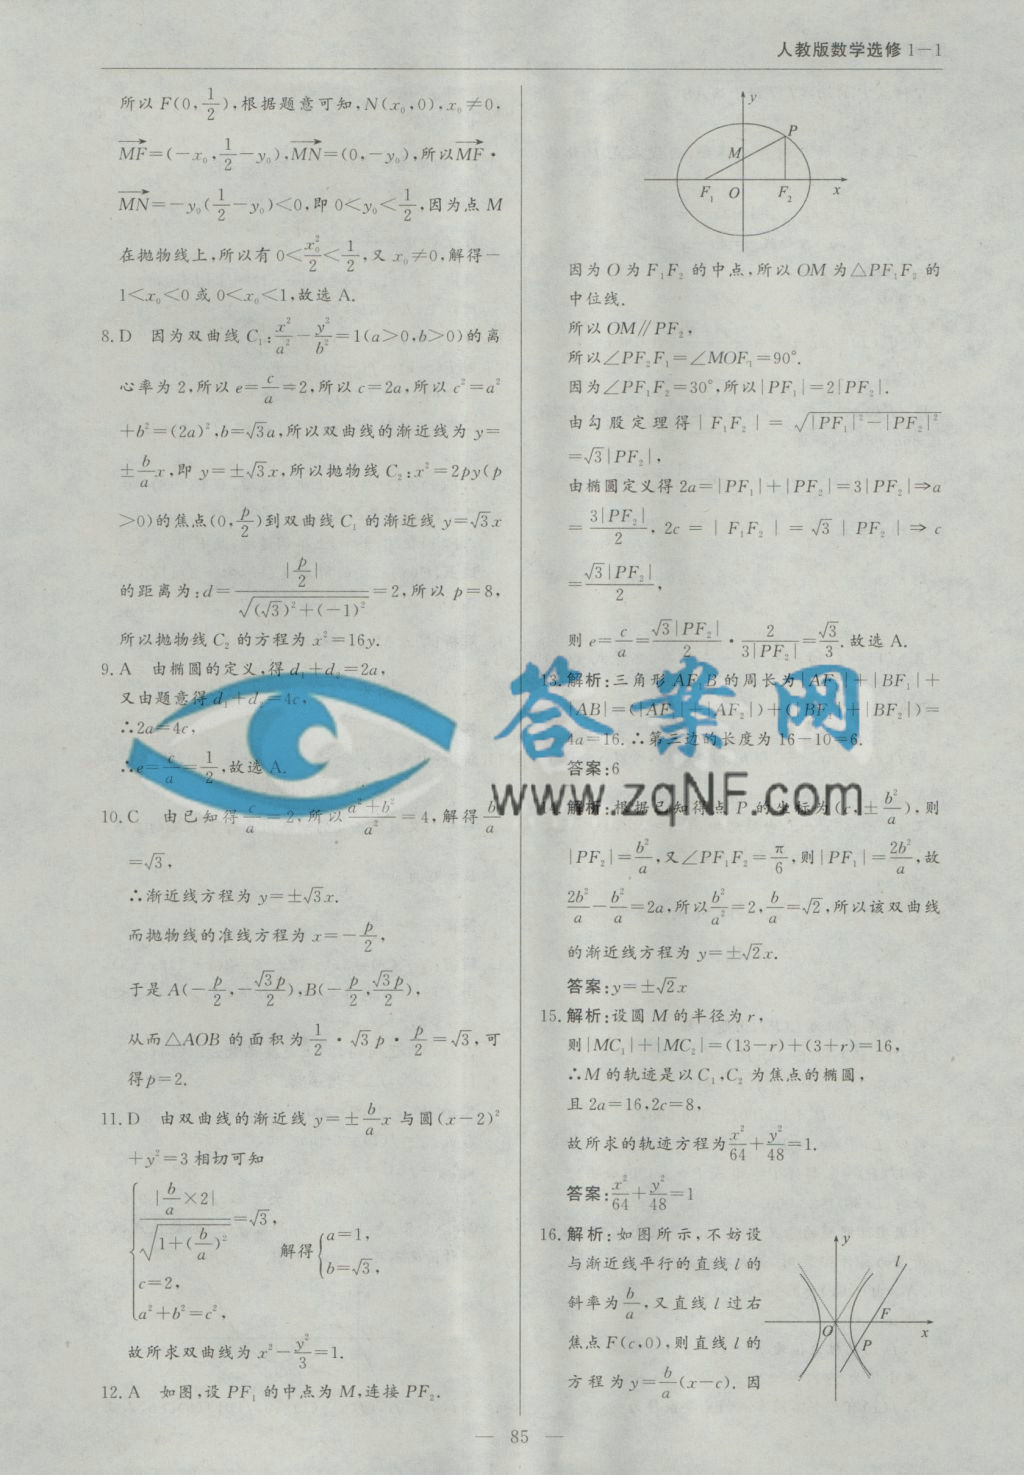 人教版数学选修 1－1
所以 F(0,1/2),根据题意可知,N(x₀,0),x₀≠0,
MF=(－x₀,1/2－y₀),MN=(0,－y₀),所以MF·
MN=－y₀(1/2－y₀)<0,即 0<y₀<1/2,因为点 M
在抛物线上,所以有 0<x₀²/2<1/2,又 x₀≠0,解得－
1<x₀<0 或 0<x₀<1,故选 A.
8. D 因为双曲线 C₁:x²/a²－y²/b²=1(a>0,b>0)的离
心率为 2,所以 e=c/a=2,所以 c=2a,所以 c²=a²
+b²=(2a)²,b=√3a,所以双曲线的渐近线为 y=
±b/a x,即 y=±√3x,所以抛物线 C₂:x²=2py(p
>0)的焦点(0,p/2)到双曲线 C₁ 的渐近线 y=√3x
的距离为:d=|p/2|/√((√3)²+(－1)²)=2,所以 p=8,
所以抛物线 C₂ 的方程为 x²=16y.
9. A 由椭圆的定义,得 d₁+d₂=2a,
又由题意得 d₁+d₂=4c,
∴2a=4c,
∴e=c/a=1/2,故选 A.
10. C 由已知得 c/a=2,所以 (a²+b²)/a²=4,解得 b/a
=√3,
∴渐近线方程为 y=±√3x.
而抛物线的准线方程为 x=－p/2,
于是 A(－p/2,－√3p/2),B(－p/2,√3p/2),
从而△AOB 的面积为 1/2·√3p·p/2=√3,可
得p=2.
11. D 由双曲线的渐近线 y=±b/a x 与圆(x－2)²
+y²=3 相切可知
{|b/a×2|/√(1+(b/a)²)=√3,
c=2,
a²+b²=c²,
解得{a=1,
b=√3,
故所求双曲线为 x²－y²/3=1.
12. A 如图,设 PF₁ 的中点为 M,连接 PF₂.
y
P
M
F₁ O F₂ x
因为 O 为 F₁F₂ 的中点,所以 OM 为△PF₁F₂ 的
中位线.
所以 OM∥PF₂,
所以∠PF₂F₁=∠MOF₁=90°.
因为∠PF₁F₂=30°,所以|PF₁|=2|PF₂|.
由勾股定理得|F₁F₂|=√(|PF₁|²－|PF₂|²)
=√3|PF₂|,
由椭圆定义得 2a=|PF₁|+|PF₂|=3|PF₂|⇒a
=3|PF₂|/2, 2c=|F₁F₂|=√3|PF₂|⇒c
=√3|PF₂|/2,
则 e=c/a=√3|PF₂|/2·2/3|PF₂|=√3/3.故选 A.
13. 解析:三角形 AF₁B 的周长为|AF₁|+|BF₁|+
|AB|=(|AF₁|+|AF₂|)+(|BF₁|+|BF₂|)=
4a=16. ∴第三边的长度为 16－10=6.
答案:6
解析:根据已知得点 P 的坐标为(c,±b²/a),则
|PF₂|=b²/a,又∠PF₁F₂=π/6,则|PF₁|=2b²/a,故
2b²/a－b²/a=2a,所以b²/a²=2,b/a=√2,所以该双曲线
的渐近线方程为 y=±√2x.
答案:y=±√2x
15. 解析:设圆 M 的半径为 r,
则|MC₁|+|MC₂|=(13－r)+(3+r)=16,
∴M 的轨迹是以 C₁,C₂ 为焦点的椭圆,
且 2a=16,2c=8,
故所求的轨迹方程为x²/64+y²/48=1.
答案:x²/64+y²/48=1
16. 解析:如图所示,不妨设
与渐近线平行的直线 l 的
斜率为b/a,又直线 l 过右
焦点 F(c,0),则直线 l 的
方程为 y=b/a(x－c). 因
y
l
F
O
P
x
答案网
www.zqNF.com
— 85 —